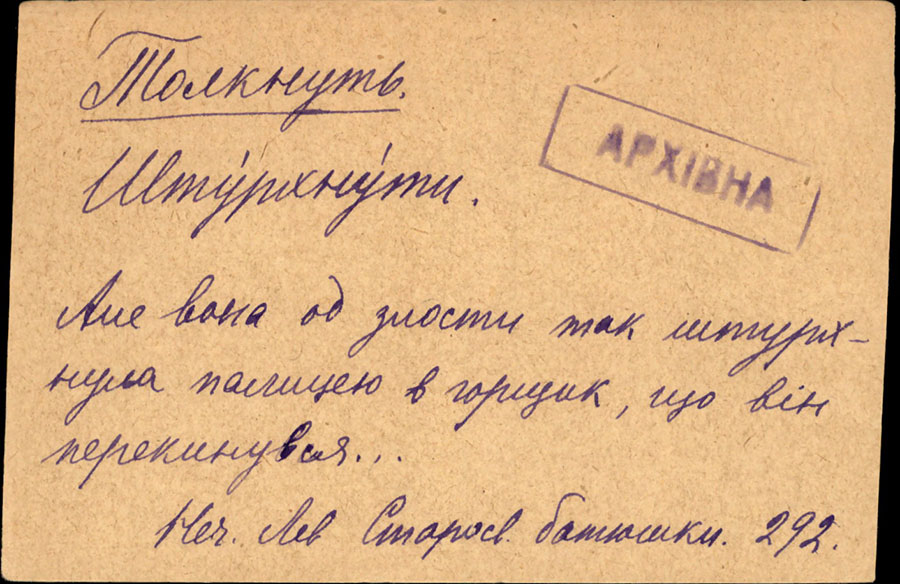 Толкнуть.
АРХІВНА
Шту́рхну́ти.
Але вона од злости так штурх-
нула палицею в горщик, що він
перекинувся...
Неч. Лев Старосв. батюшки. 292.